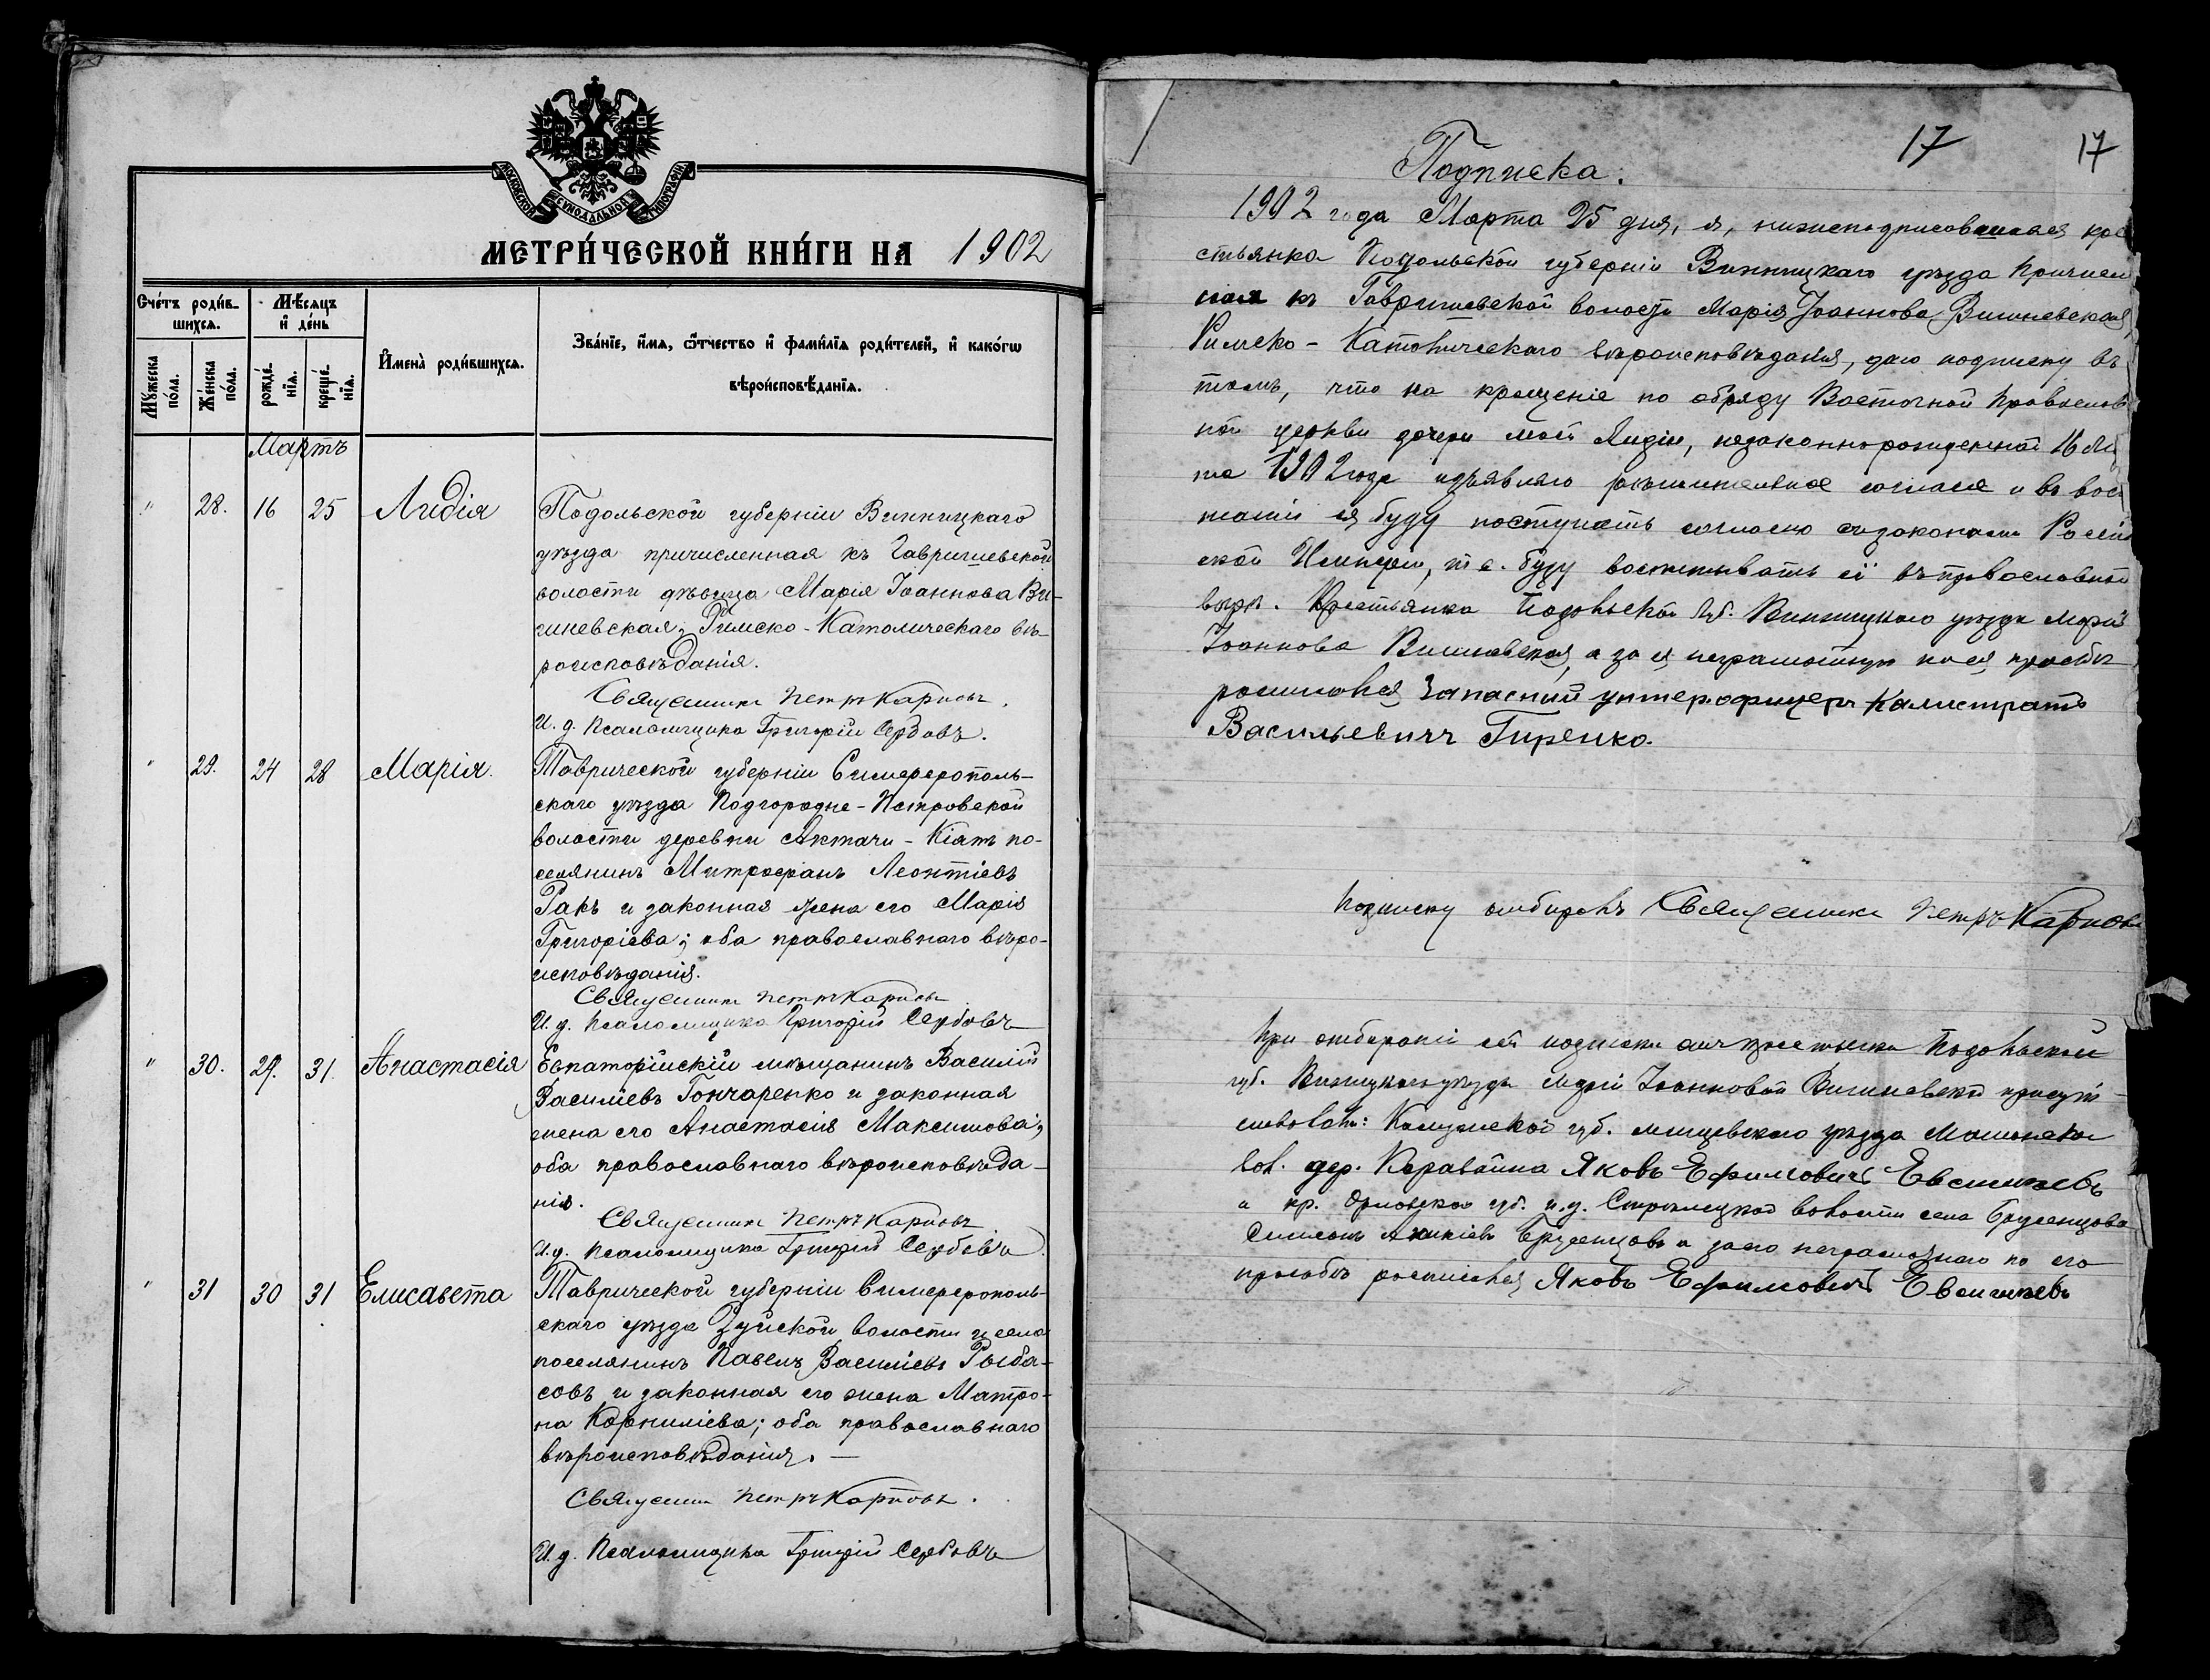 МОСКОВСКОЙ СѴНОДАЛЬНОЙ ТИПОГРАФІИ
МЕТРИ́ЧЕСКОЙ КНИ́ГИ НА 1902
Счétъ роди́в-
шихсѧ.
Мꙋ́жеска по́ла.
Же́нска по́ла.
Мѣ́сяцъ
и҆ де́нь
рожде́нїѧ.
креще́нїѧ.
И҆мена̀ роди́вшихсѧ.
Зва́нїе, и҆́мѧ, ѻ҆́тчество и҆ фами́лїѧ роди́телей, и҆ како́гѡ
вѣроисповѣ́данїѧ.
Мартъ
" 28. 16 25 Лидія
Подольской губерніи Винницкаго
уѣзда причисленная къ Гавришевской
волости дѣвица Марія Іоаннова Ви-
шневская, Римско-Католическаго вѣ-
роисповѣданія.
Священникъ Петръ Карповъ.
И. д. Псаломщика Григорій Сербовъ.
" 29. 24 28 Марія.
Таврической губерніи Симферополь-
скаго уѣзда Подгородне-Петровской
волости деревни Актачи-Кіятъ по-
селянинъ Митрофанъ Леонтіевъ
Ракъ и законная жена его Марія
Григоріева; оба православнаго вѣро-
исповѣданія.
Священникъ Петръ Карповъ
И. д. Псаломщика Григорій Сербовъ
" 30. 29. 31. Анастасія
Евпаторійскій мѣщанинъ Василій
Василіевъ Гончаренко и законная
жена его Анастасія Максимова;
оба православнаго вѣроисповѣда-
нія.
Священникъ Петръ Карповъ
И. д. Псаломщика Григорій Сербовъ
" 31 30 31 Елисавета
Таврической губерніи Симферополь-
скаго уѣзда Зуйской волости и села
поселянинъ Павелъ Василіевъ Рыба-
совъ и законная его жена Матро-
на Корниліева; оба православнаго
вѣроисповѣданія. —
Священникъ Петръ Карповъ.
И. д. Псаломщика Григорій Сербовъ
17 17
Подписка.
1902 года Марта 25 дня, я, нижеподписавшаяся кре
стьянка Подольской губерніи Винницкаго уѣзда причислен
ная къ Гавришевской волости Марія Іоаннова Вишневская,
Римско-Католическаго вѣроисповѣданія, даю подписку въ
томъ, что на крещеніе по обряду Восточной Православ
ной церкви дочери моей Лидіи, незаконнорожденной 16 Ма
та 1902 года изъявляю рѣшительное согласіе и въ вос
питаніи ея буду поступать согласно съ законами Россій
ской Имперіи, т. е. буду воспитывать её въ православной
вѣрѣ. Крестьянка Подольской губ. Винницкаго уѣзда Марія
Іоаннова Вишневская, а за ея неграмотную по ея просьбѣ
росписался Запасный унтер. офицеръ Калистратъ
Васильевичъ Гиренко.
Подписку отбиралъ Священникъ Петръ Карповъ
При отбираніи сей подписки отъ крестьянки Подольской
губ. Винницкаго уѣзда Маріи Іоанновой Вишневской присут-
ствовали: Калужской губ. мещевскаго уѣзда
вол. дер. Караваина Яковъ Ефимовичъ Евсигнѣевъ
и кр. Орловской губ. и у. Стрѣлецкой волости села Бруенцова
Симеонъ Бруенцовъ а за его неграмотнаго по его
просьбѣ росписался Яковъ Ефимовичъ Евсигнѣевъ